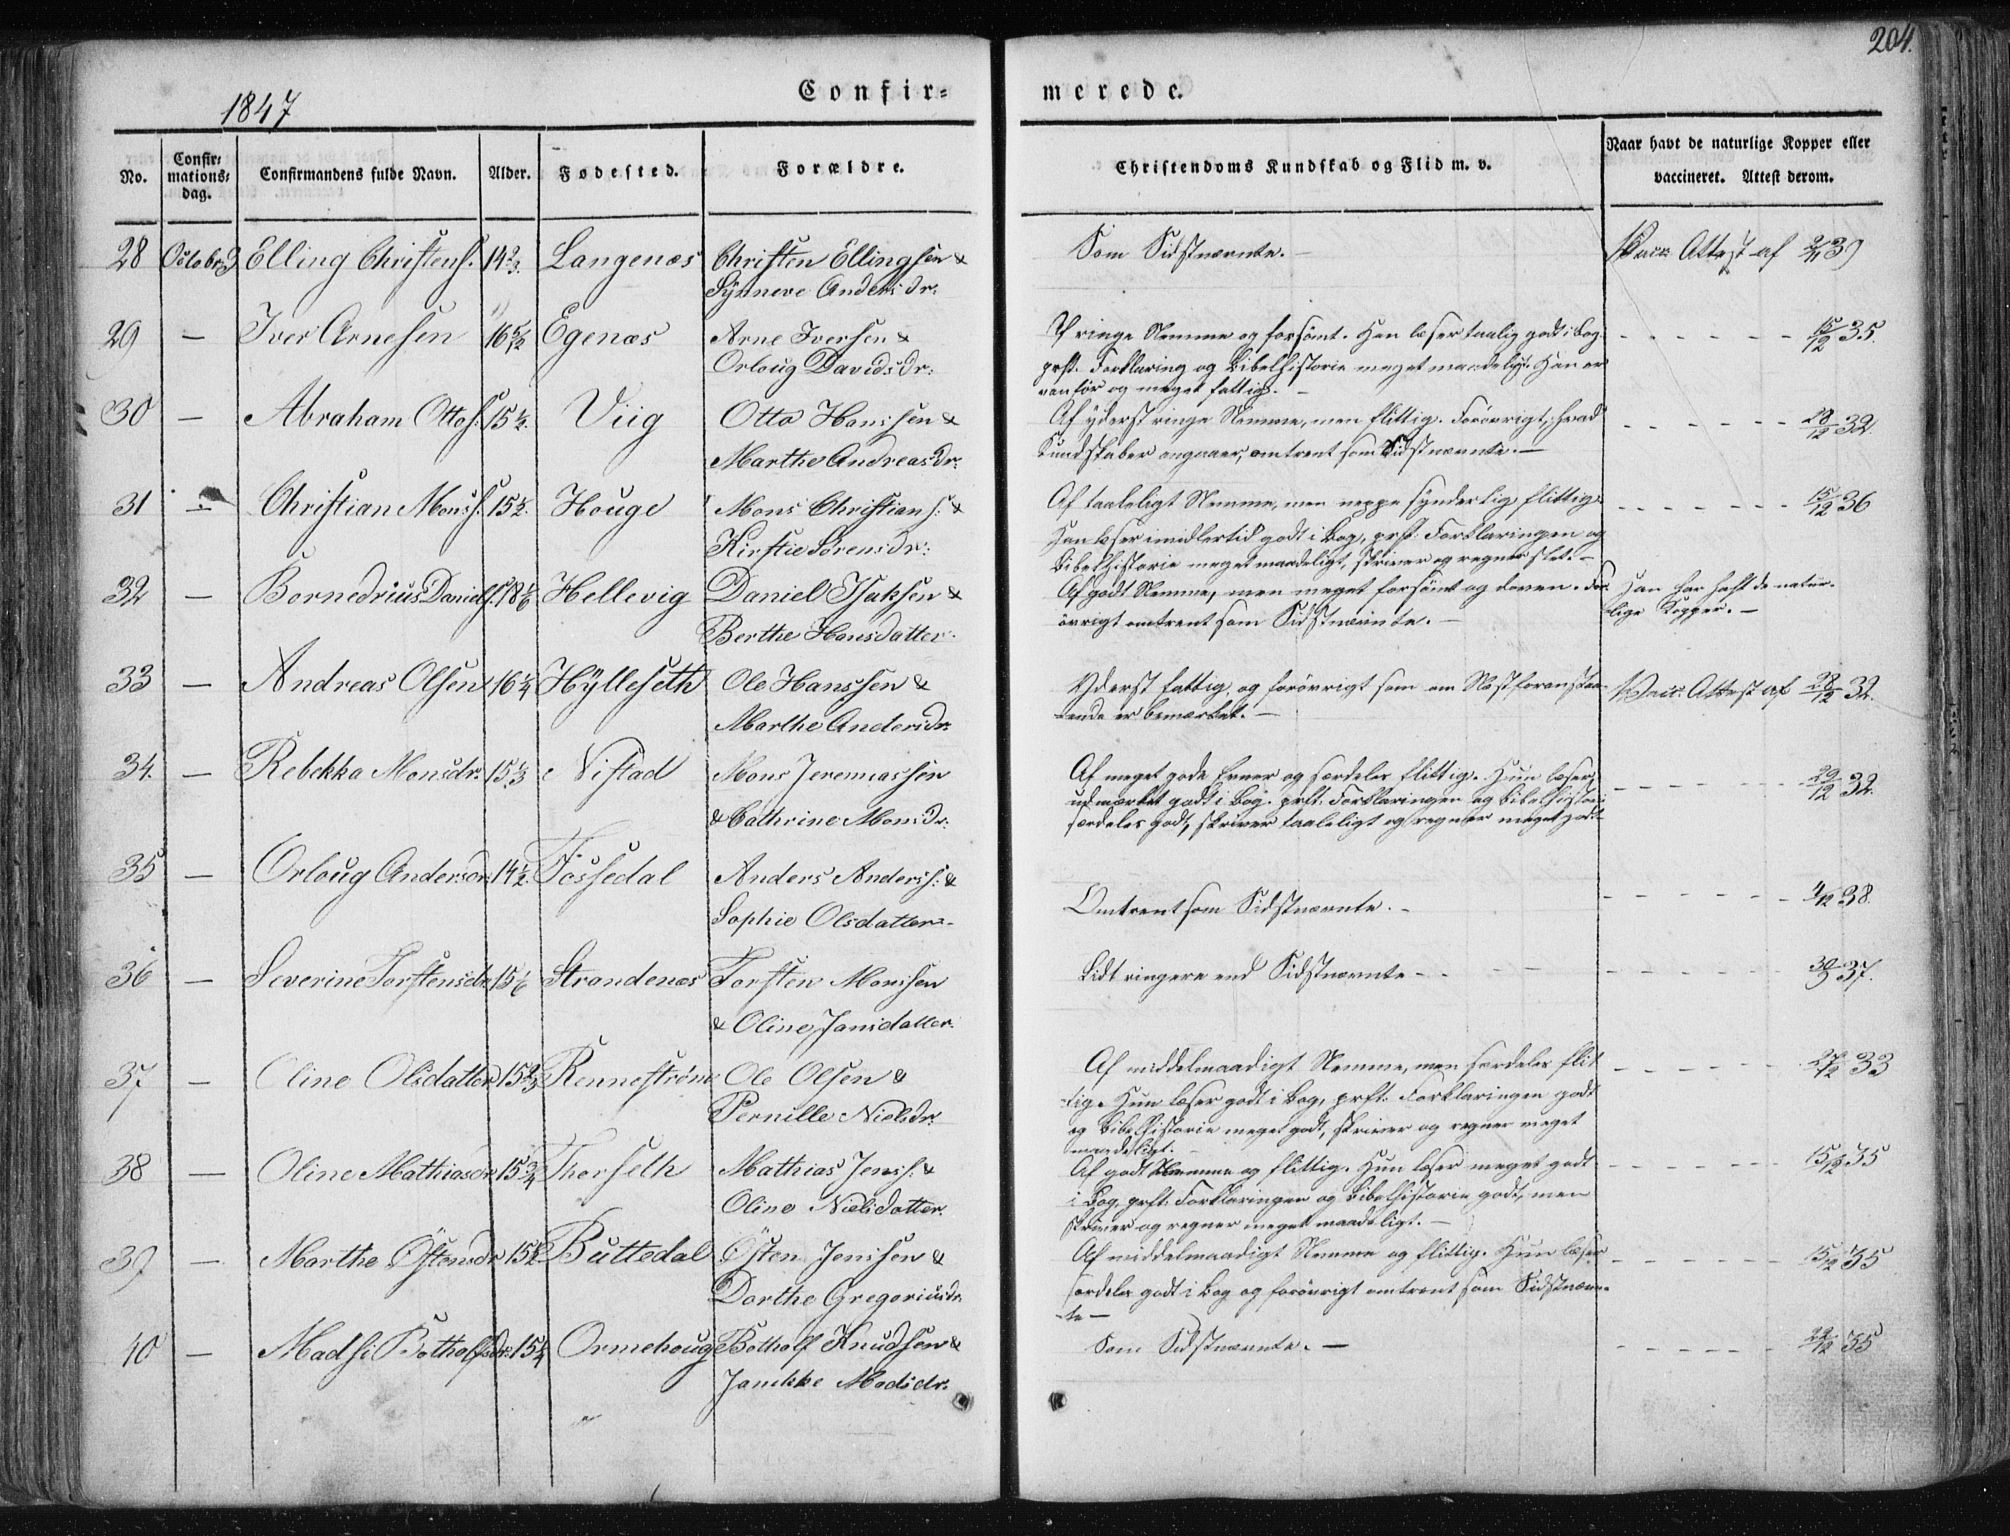 204.
1847
Confir=
merede.
No.
Confir=
mations=
dag.
Confirmandens fulde Navn.
Alder.
Fødested.
Forældre.
Christendoms Kundskab og Flid m. v.
Naar havt de naturlige Kopper eller
vaccineret. Attest derom.
28 October 3 Elling Christens. 14 2/3. Langenæs Christen Ellingsen &
Synneve Andersdr:
Som Sidstnævnte. —
Vacc. Attest af
29 — Iver Arnesen 16 5/12 Egenæs Arne Iversen &
Orloug Davidsdr:
Af ringe Nemme og forsømt. Han læser taalig godt i Bog,
prst. Forklaring og Bibelhistorie meget maadeligt. Han er
vanför og meget fattig. —
15/12 35.
30 — Abraham Ottos. 15 1/2. Viig Otto Hanssen &
Marthe Andreasdr:
Af yderst ringe Nemme, men flittig. Forøvrigt, hvad
Kundskaber angaaer, omtrent som Sidstnævnte. —
28/12 32.
31 — Christian Monss. 15 1/2. Houge Mons Christians. &
Kirstie Sørensdr:
Af taaleligt Nemme, men neppe synderlig flittig.
Han læser imidlertid godt i Bog, prst. Forklaringen og
Bibelhistorie meget maadeligt, skriver og regner slet. —
15/12 36
32 — Bornedrius Daniels. 18 1/6 Hellevig Daniel Isaksen &
Berthe Hansdatter.
Af godt Nemme, men meget forsømt og doven. For-
øvrigt omtrent som Sidstnævnte. —
Han har haft de natur-
lige Kopper. —
33 — Andreas Olsen 16 1/4 Hylleseth Ole Hanssen &
Marthe Andersdr:
Yderst fattig, og forøvrigt som om Næstforanstaa-
ende er bemærket. —
Vacc. Attest af 28/12 32.
34. — Rebekka Monsdr: 15 1/3 Nistad Mons Jeremiassen
& Cathrine Monsdr:
Af meget gode Evner og særdeles flittig. Hun læser
udmærket godt i Bog. prst. Forklaringen og Bibelhistorie
særdeles godt, skriver taaleligt og regner meget godt
29/12 32.
35 — Orloug Andersdr: 14 1/2. Fossedal Anders Anderss. &
Sophie Olsdatter. -
Omtrent som Sidstnævnte. —
4/12 38.
36 — Severine Torstensdr. 15 1/6 Strandenæs Torsten Monssen
& Oline Jansdatter.
Lidt ringere end Sidstnævnte —
30/9 37.
37 — Oline Olsdatter 15 2/3 Rennestrøm Ole Olsen &
Pernille Nielsdr:
Af middelmaadigt Nemme, men særdeles flit
tig. Hun læser godt i Bog, prst. Forklaringen godt
og Bibelhistorie meget godt, skriver og regner meget
maadeligt. —
27/12 33
38 — Oline Mathiasdr. 15 3/4 Thorseth Mathias Jenss. &
Oline Nielsdatter.
Af godt Nemme og flittig. Hun læser meget godt
i Bog, prst. Forklaringen og Bibelhistorie godt, men
skriver og regner meget maadeligt. —
15/12 35
39 — Marthe Østensdr 15 1/2 Buttedal Østen Jenssen &
Dorthe Gregoriusdr.
Af middelmaadigt Nemme og flittig. Hun læser
særdeles godt i Bog og forøvrigt omtrent som Sidstnævn-
te —
15/12 35
40 — Madsi Botholfsdr. 15 1/4 Ormehoug Botholf Knudsen &
Janikke Madsdr.
Som Sidstnævnte. —
22/12 35